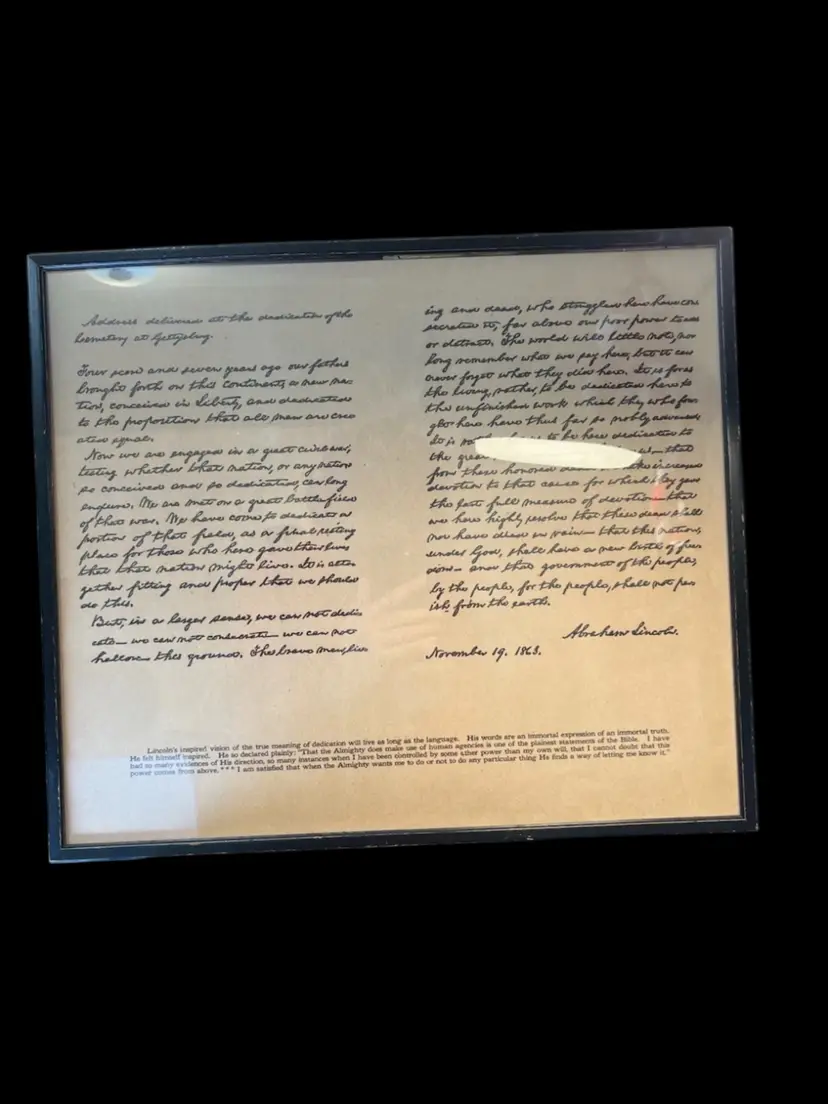 Address delivered at the dedication of the
Cemetery at Gettysburg.
Four score and seven years ago our fathers
brought forth on this continent, a new na-
tion, conceived in Liberty, and dedicated
to the proposition that all men are cre-
ated equal.
Now we are engaged in a great civil war,
testing whether that nation, or any nation
so conceived and so dedicated, can long
endure. We are met on a great battle-field
of that war. We have come to dedicate a
portion of that field, as a final resting
place for those who here gave their lives
that that nation might live. It is alto-
gether fitting and proper that we should
do this.
But, in a larger sense, we can not dedi-
cate— we can not consecrate— we can not
hallow— this ground. The brave men, liv-
ing and dead, who struggled here have con-
secrated it, far above our poor power to add
or detract. The world will little note, nor
long remember what we say here, but it can
never forget what they did here. It is for us
the living, rather, to be dedicated here to
the unfinished work which they who fou-
ght here have thus far so nobly advanced.
It is to be here dedicated to
the great —that
from these honored increased
devotion to that cause for which they gave
the last full measure of devotion— that
we here highly resolve that these dead shall
not have died in vain— that this nation,
under God, shall have a new birth of free-
dom— and that government of the people,
by the people, for the people, shall not per-
ish from the earth.
Abraham Lincoln.
November 19. 1863.
Lincoln's inspired vision of the true meaning of dedication will live as long as the language. His words are an immortal expression of an immortal truth.
He felt himself inspired. He so declared plainly: "That the Almighty does make use of human agencies is one of the plainest statements of the Bible. I have
had so many evidences of His direction, so many instances when I have been controlled by some other power than my own will, that I cannot doubt that this
power comes from above. * * * I am satisfied that when the Almighty wants me to do or not to do any particular thing He finds a way of letting me know it."